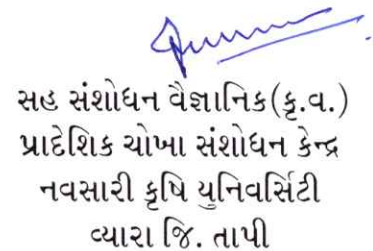 સહ સંશોધન વૈજ્ઞાનિક(કૃ.વ.)
પ્રાદેશિક ચોખા સંશોધન કેન્દ્ર
નવસારી કૃષિ યુનિવર્સિટી
વ્યારા જિ. તાપી